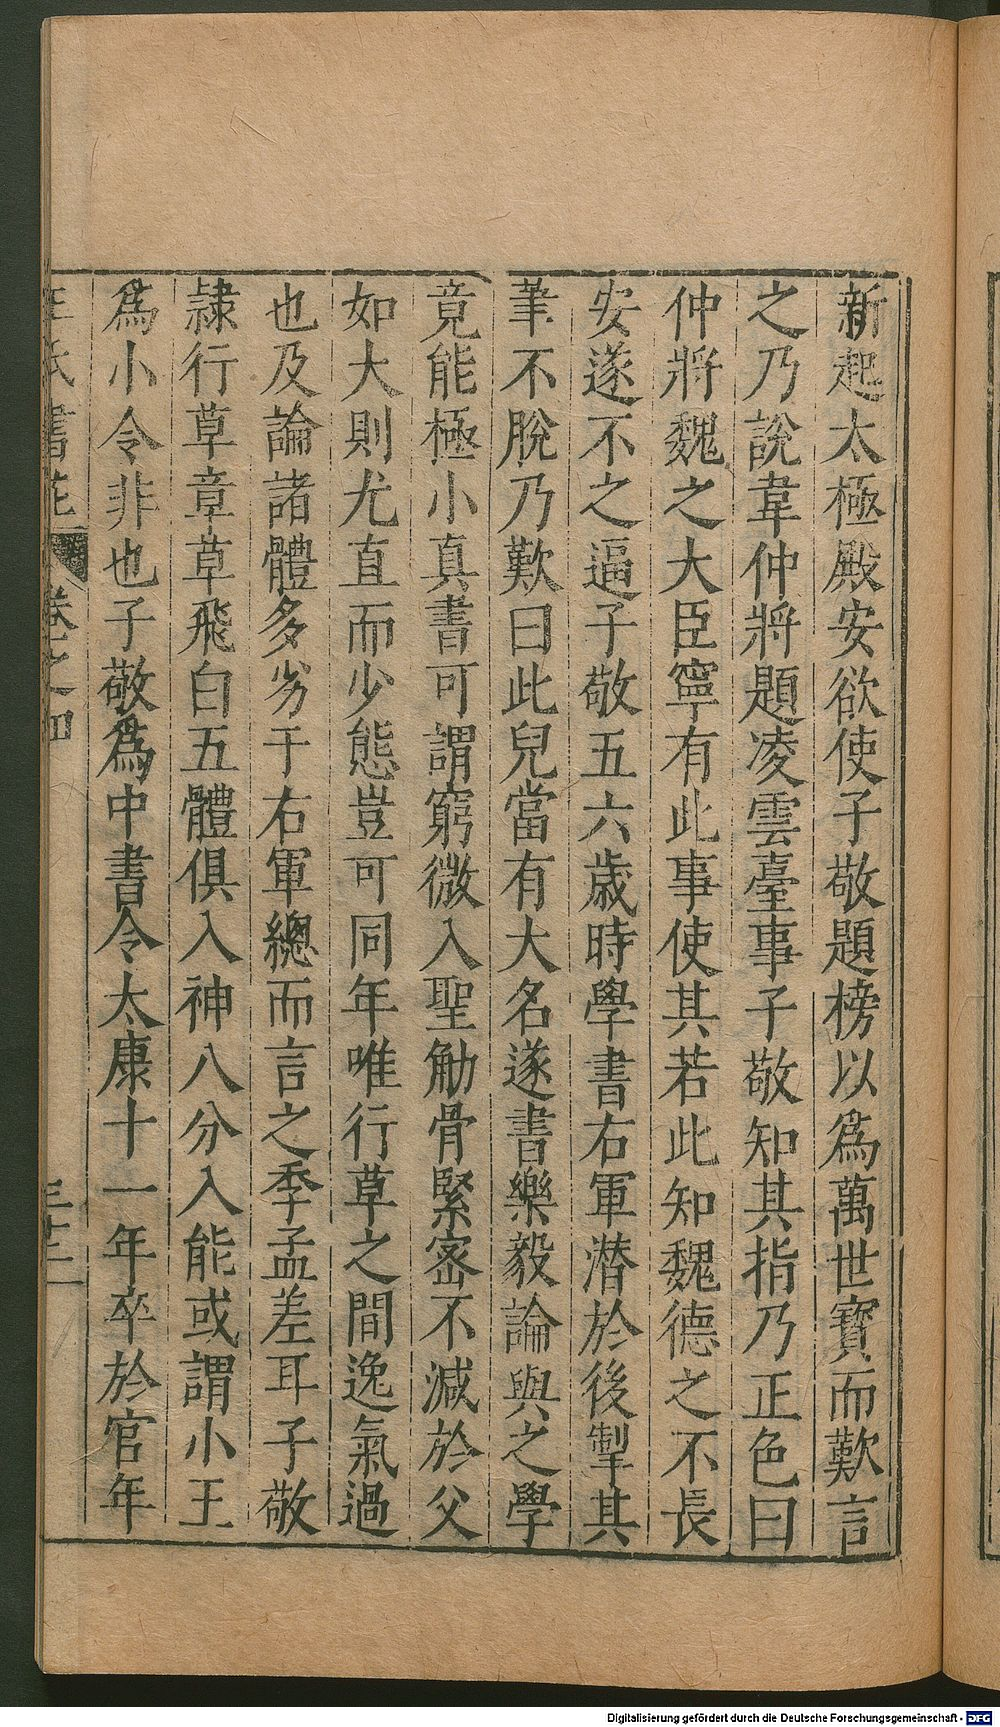 新起太極殿安欲使子敬題榜以爲萬世寳而歎言
之乃說韋仲將題凌雲臺事子敬知其指乃正色曰
仲將魏之大臣寧有此事使其若此知魏德之不長
安遂不之逼子敬五六歳時學書右軍潜於後掣其
筆不脫乃歎曰此兒當有大名遂書樂毅論與之學
竟能極小真書可謂窮微入聖觔骨緊宻不減於父
如大則尤直而少態豈可同年唯行草之間逸氣過
也及論諸體多劣于右軍總而言之季孟差耳子敬
隷行草章草飛白五體俱入神八分入能或謂小王
爲小令非也子敬爲中書令太康十一年卒於官年
王氏書苑 卷之四 三十二
Digitalisierung gefördert durch die Deutsche Forschungsgemeinschaft - DFG